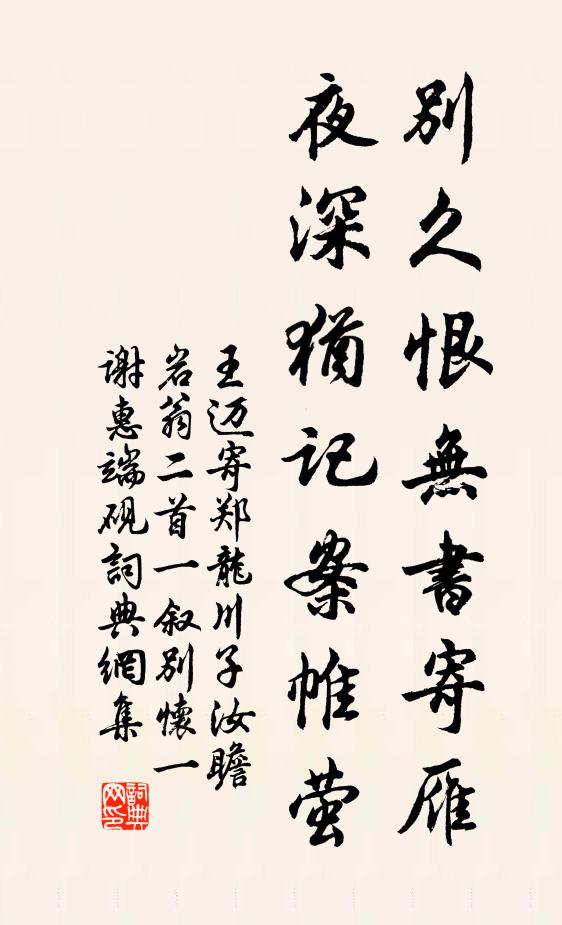 別久恨無書寄雁
夜深猶記案帷萤
王迈寄郑龍川子汝瞻
岩翁二首一叙别懷一
谢惠端砚詞典網集
詞典
网印